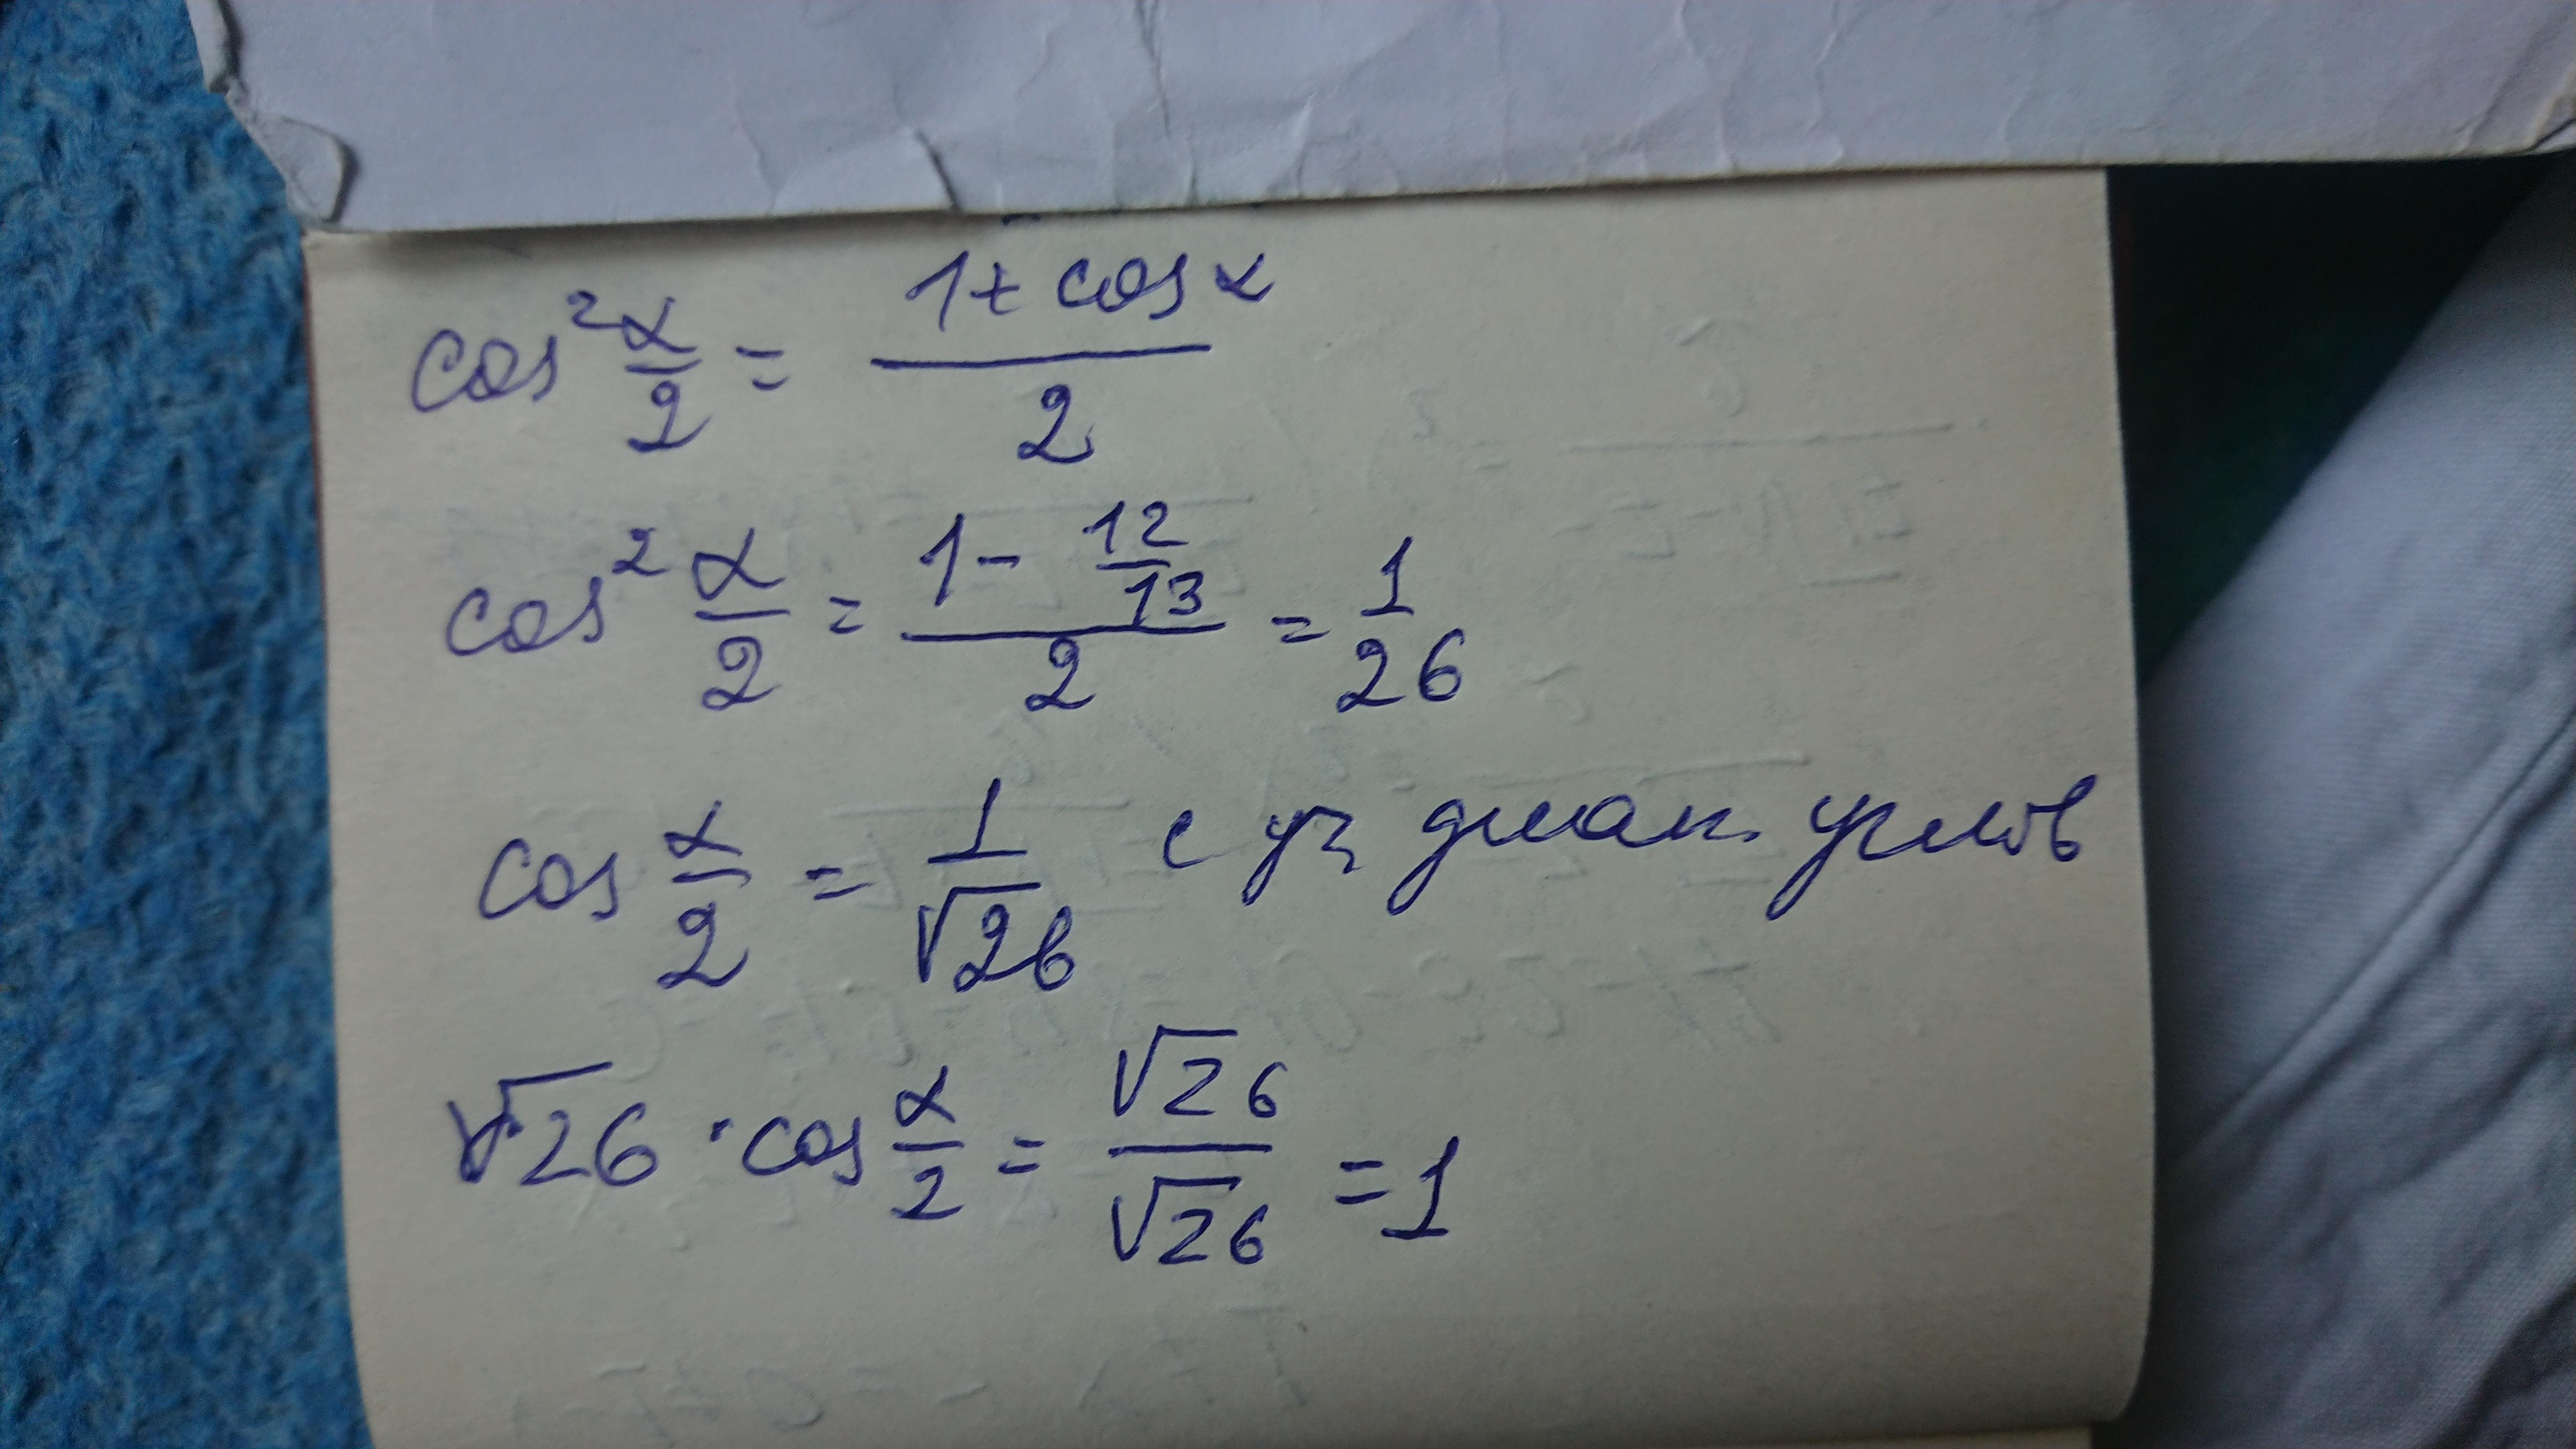 cos² α/2 = (1 + cos α)/2
cos² α/2 = (1 - 12/13)/2 = 1/26
cos α/2 = 1/√26 с уч диап. углов
√26 · cos α/2 = √26/√26 = 1